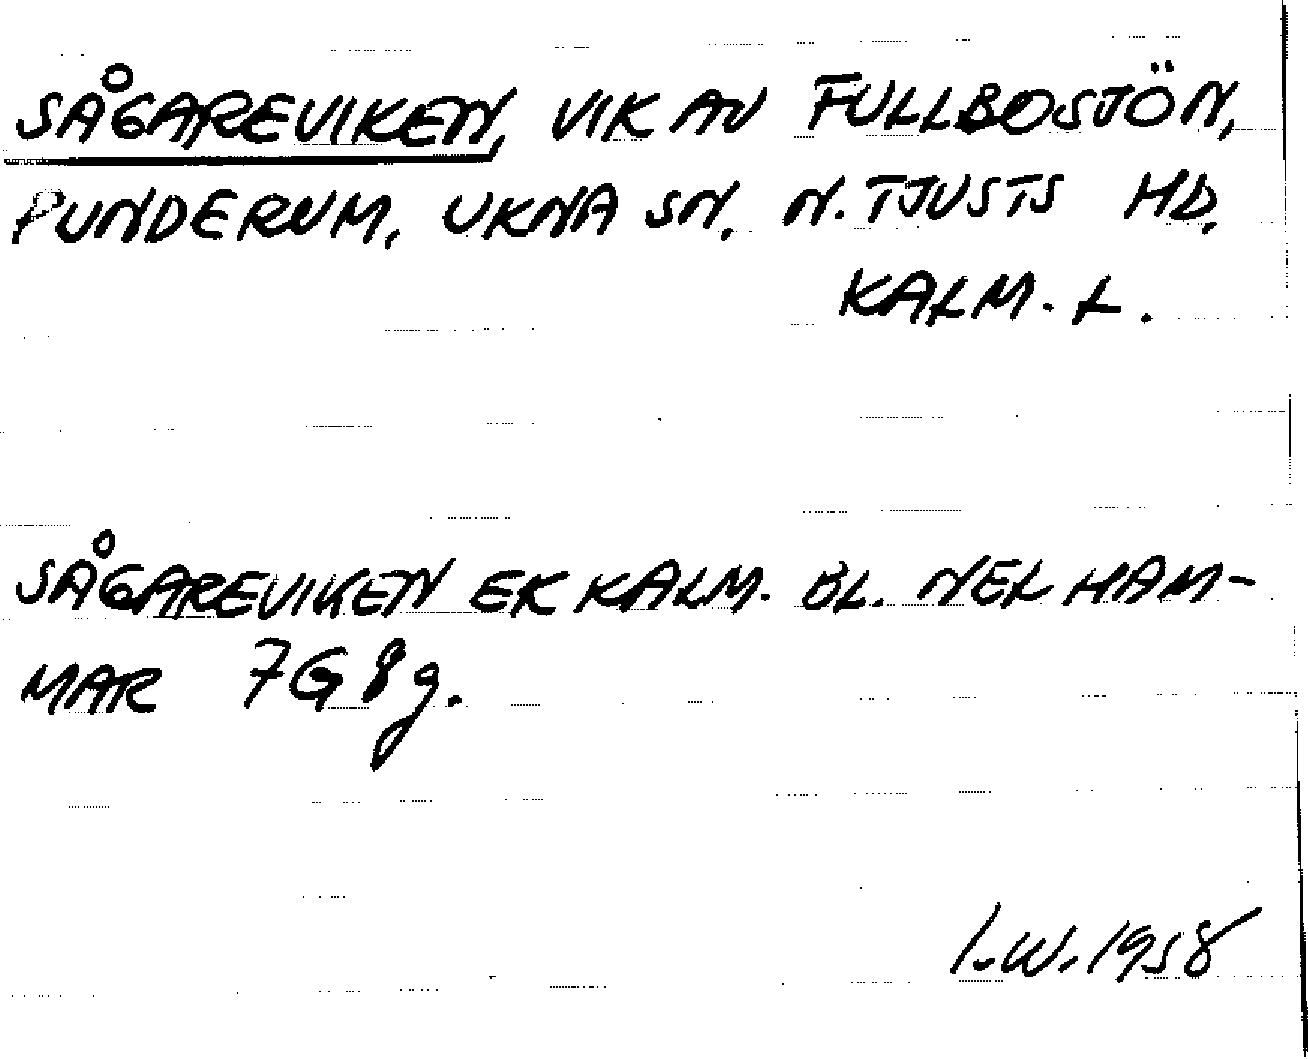 SÅGAREVIKEN, VIK AV FULLBOSJÖN,
PUNDERUM, UKNA SN. N. TJUSTS HD.
KALM. L.
SÅGAREVIKEN EK KALM. BL. NELHAM-
MAR 7G 8g.
I.W. 1958